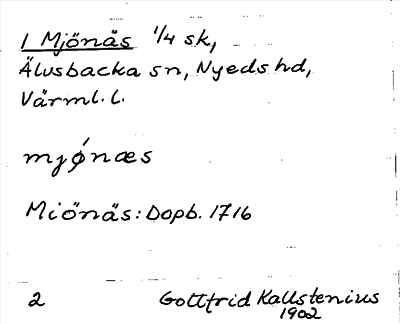 1 Mjönäs 1/4 sk,
Älvsbacka sn, Nyeds hd,
Värml. l.
mjǿnæs
Miönäs: Dopb. 1716
2 Gottfrid Kallstenius
1902